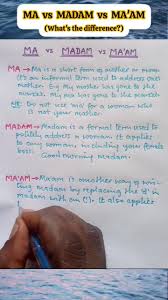 MA vs MADAM vs MA'AM
(What's the difference?)
MA vs MADAM vs MA'AM
MA → Ma is a short form of mother or mom.
It's an informal term used to address one's
mother. E.g My mother has gone to the
market. My ma has gone to the market.
NB: Do not use 'ma' for a woman who
is not your mother.
MADAM → Madam is a formal term used to
politely address a woman. It applies
to any woman, including your female
boss.
Good morning madam.
MA'AM → Ma'am is another way of
writing madam by replacing the 'd' in
madam with an ('). It also applies